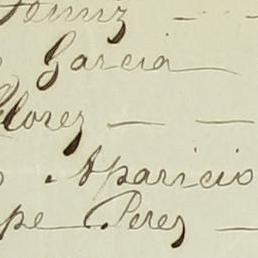 Garcia
Florez —
Aparicio
pe Perez —